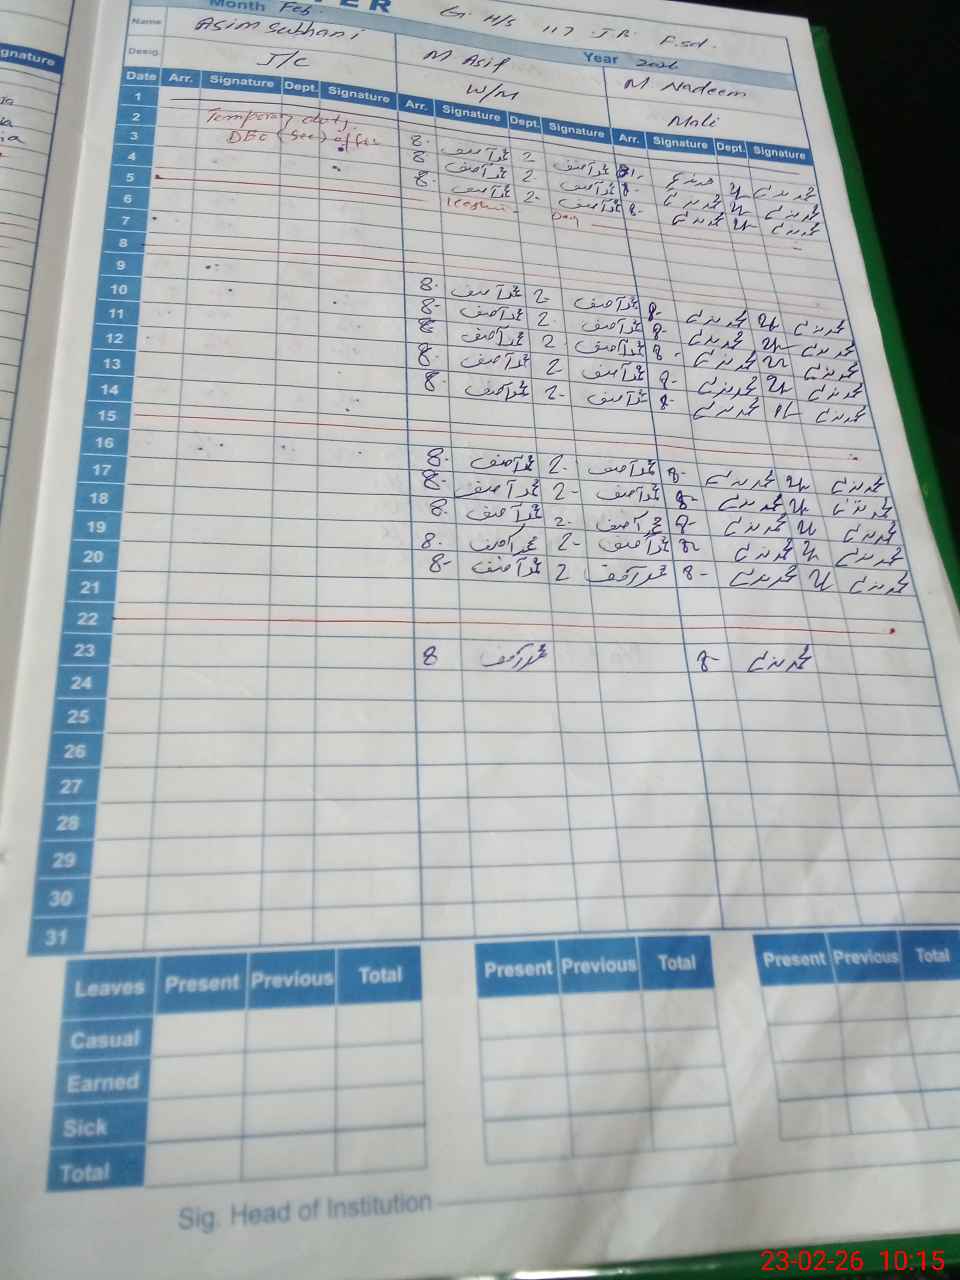 G. H/S 117 J.B. F.sd.
Month Feb. Year 2026
Name Asim Subhani M Asif M Nadeem
Desig. J/C W/M Mali
Date Arr. Signature Dept. Signature Arr. Signature Dept. Signature Arr. Signature Dept. Signature
1
2 Temporary duty
3 DEO (Sec) office 8- محمد آصف 2 محمد آصف 8- محمد ندیم 2 محمد ندیم
4 8 محمد آصف 2 محمد آصف 8- محمد ندیم 2 محمد ندیم
5 8- محمد آصف 2- محمد آصف 8- محمد ندیم 2 محمد ندیم
6 Day
7
8
9
10 8- محمد آصف 2- محمد آصف 8- محمد ندیم 2 محمد ندیم
11 8- محمد آصف 2 محمد آصف 8- محمد ندیم 2 محمد ندیم
12 8 محمد آصف 2 محمد آصف 8- محمد ندیم 2 محمد ندیم
13 8- محمد آصف 2 محمد آصف 8- محمد ندیم 2 محمد ندیم
14 8- محمد آصف 2- محمد آصف 8- محمد ندیم 2 محمد ندیم
15
16
17 8- محمد آصف 2- محمد آصف 8- محمد ندیم 2 محمد ندیم
18 8- محمد آصف 2- محمد آصف 8- محمد ندیم 2 محمد ندیم
19 8- محمد آصف 2- محمد آصف 8- محمد ندیم 2 محمد ندیم
20 8- محمد آصف 2- محمد آصف 8- محمد ندیم 2 محمد ندیم
21 8- محمد آصف 2 محمد آصف 8- محمد ندیم 2 محمد ندیم
22
23 8 محمد آصف 8- محمد ندیم
24
25
26
27
28
29
30
31
Leaves Present Previous Total Present Previous Total Present Previous Total
Casual
Earned
Sick
Total
Sig. Head of Institution
23-02-26 10:15